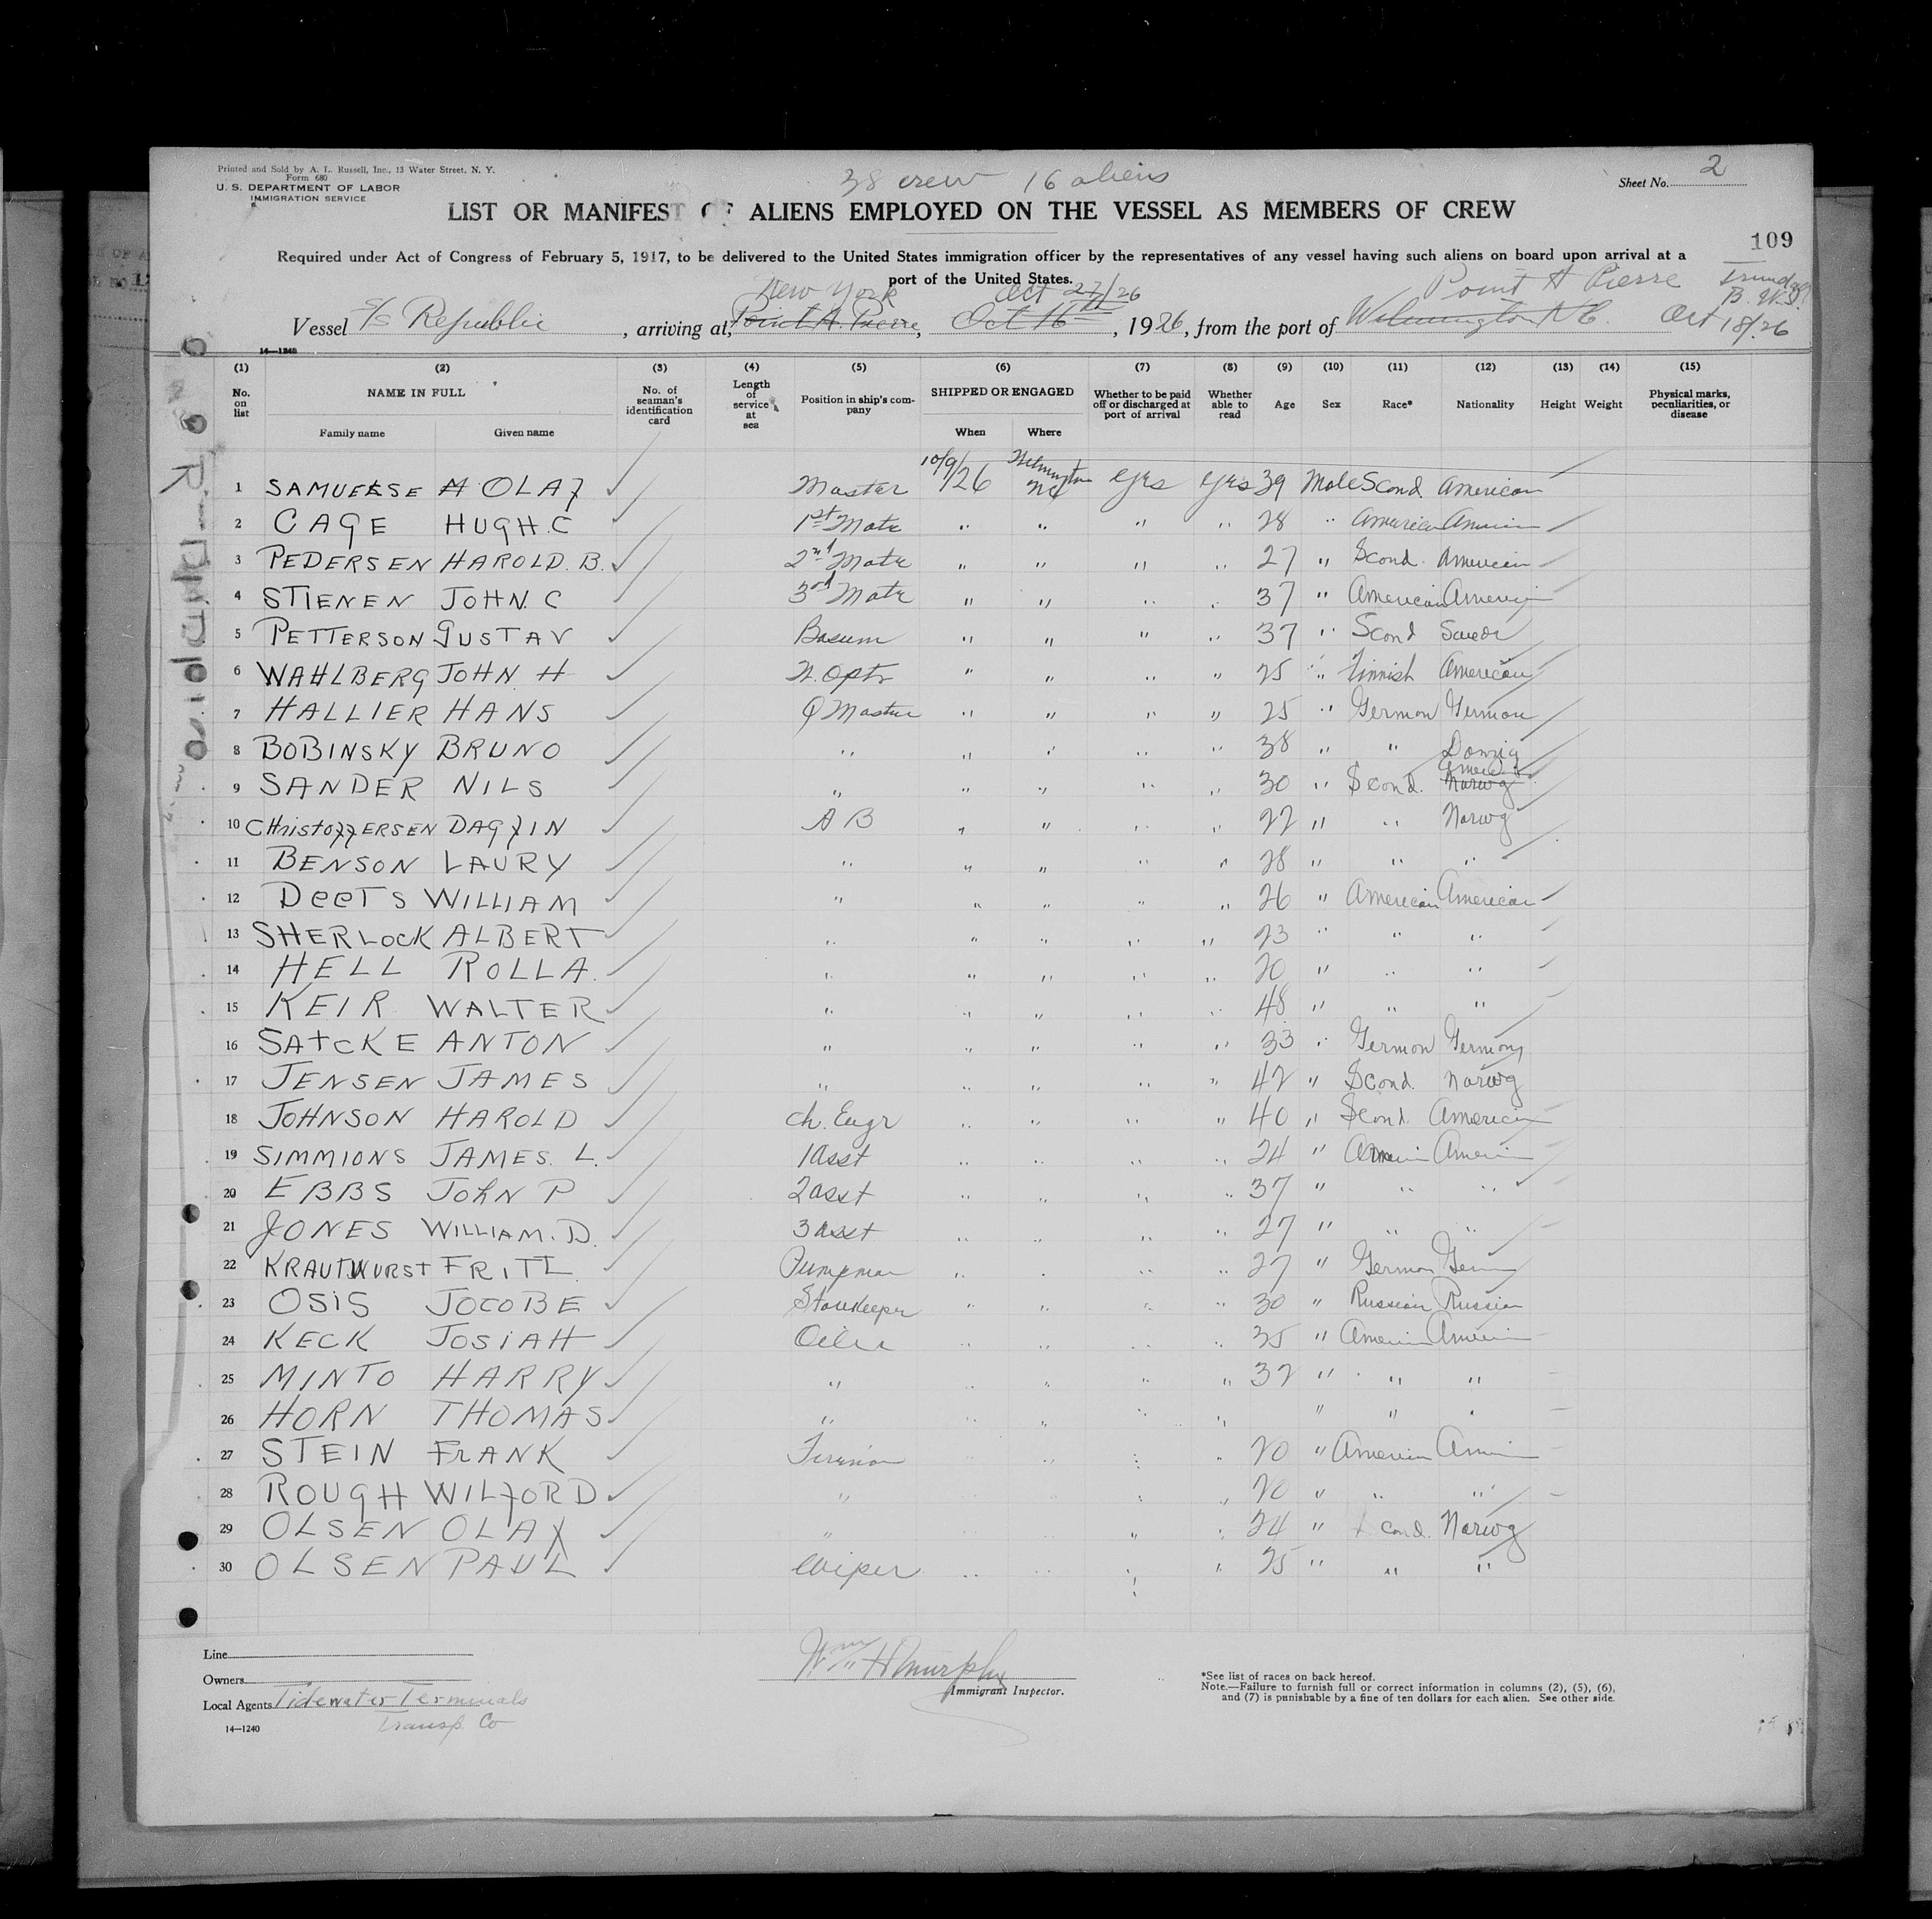 Printed and Sold by A. L. Russell, Inc., 13 Water Street, N. Y.
Form 680
U. S. DEPARTMENT OF LABOR
IMMIGRATION SERVICE
38 crew 16 aliens
Sheet No. 2
LIST OR MANIFEST OF ALIENS EMPLOYED ON THE VESSEL AS MEMBERS OF CREW
109
Required under Act of Congress of February 5, 1917, to be delivered to the United States immigration officer by the representatives of any vessel having such aliens on board upon arrival at a
port of the United States.
New York Oct 27/26 Point A Pierre B.W.I.
Vessel S/S Republic, arriving at Point A. Pierre, Oct 16th, 1926, from the port of Wilmington N C. Oct 18/26
14—1240
(1) (2) (3) (4) (5) (6) (7) (8) (9) (10) (11) (12) (13) (14) (15)
No. on list NAME IN FULL Family name Given name No. of seaman's identification card Length of service at sea Position in ship's company SHIPPED OR ENGAGED When Where Whether to be paid off or discharged at port of arrival Whether able to read Age Sex Race* Nationality Height Weight Physical marks, peculiarities, or disease
1 SAMUELSE H OLAF Master 10/9/26 Wilmington NC yes yes 39 Male Scand. American
2 CAGE HUGH. C 1st Mate " " " " 28 " American American
3 PEDERSEN HAROLD. B. 2nd Mate " " " " 27 " Scand. American
4 STIENEN JOHN. C 3rd Mate " " " " 37 " American American
5 PETTERSON GUSTAV Bosum " " " " 37 " Scand Swede
6 WAHLBERG JOHN H " " " " 25 " Finnish American
7 HALLIER HANS Q Master " " " " 25 " German German
8 BOBINSKY BRUNO " " " " " 38 " " Danzig
9 SANDER NILS " " " " " 30 " Scand. Norwg
10 CHristoffERSEN DAGFIN A B " " " " 22 " " Norwg
11 BENSON LAURY " " " " " 28 " " "
12 DeeTS WILLIAM " " " " " 26 " American American
13 SHERLocK ALBERT " " " " " 23 " " "
14 HELL ROLLA. " " " " " 20 " " "
15 KEIR WALTER " " " " " 48 " " "
16 SAtCKE ANTON " " " " " 33 " German Germany
17 JENSEN JAMES " " " " " 42 " Scand. Norwg
18 JOHNSON HAROLD Ch. Engr " " " " 40 " Scand. American
19 SIMMIONS JAMES. L. 1 asst " " " " 24 " Ameri Ameri
20 EBBS JOhN P 2 asst " " " " 37 " " "
21 JONES WILLIAM. D. 3 asst " " " " 27 " " "
22 KRAUTWURST FRITZ Pumpman " " " " 27 " German Germ
23 OSiS JOCOBE Storekeeper " " " " 30 " Russian Russian
24 KECK JOSiAH Oiler " " " " 35 " Ameri Ameri
25 MINTO HARRY " " " " " 32 " " "
26 HORN THOMAS " " " " " " " "
27 STEIN FrANK Fireman " " " " 20 " American Ameri
28 ROUGH WILFORD " " " " " 20 " " "
29 OLSEN OLAF " " " " " 24 " Scand. Norwg
30 OLSEN PAUL Wiper " " " " 25 " " "
Line
Owners
Local Agents Tidewater Terminals
Transp. Co
14—1240
Wm H Murphy
Immigrant Inspector.
*See list of races on back hereof.
Note.—Failure to furnish full or correct information in columns (2), (5), (6),
and (7) is punishable by a fine of ten dollars for each alien. See other side.